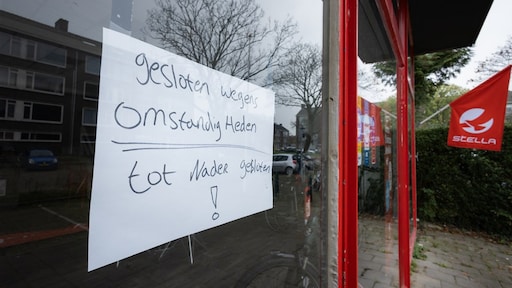 gesloten wegens
omstandigHeden
tot Nader gesloten
!
STELLA